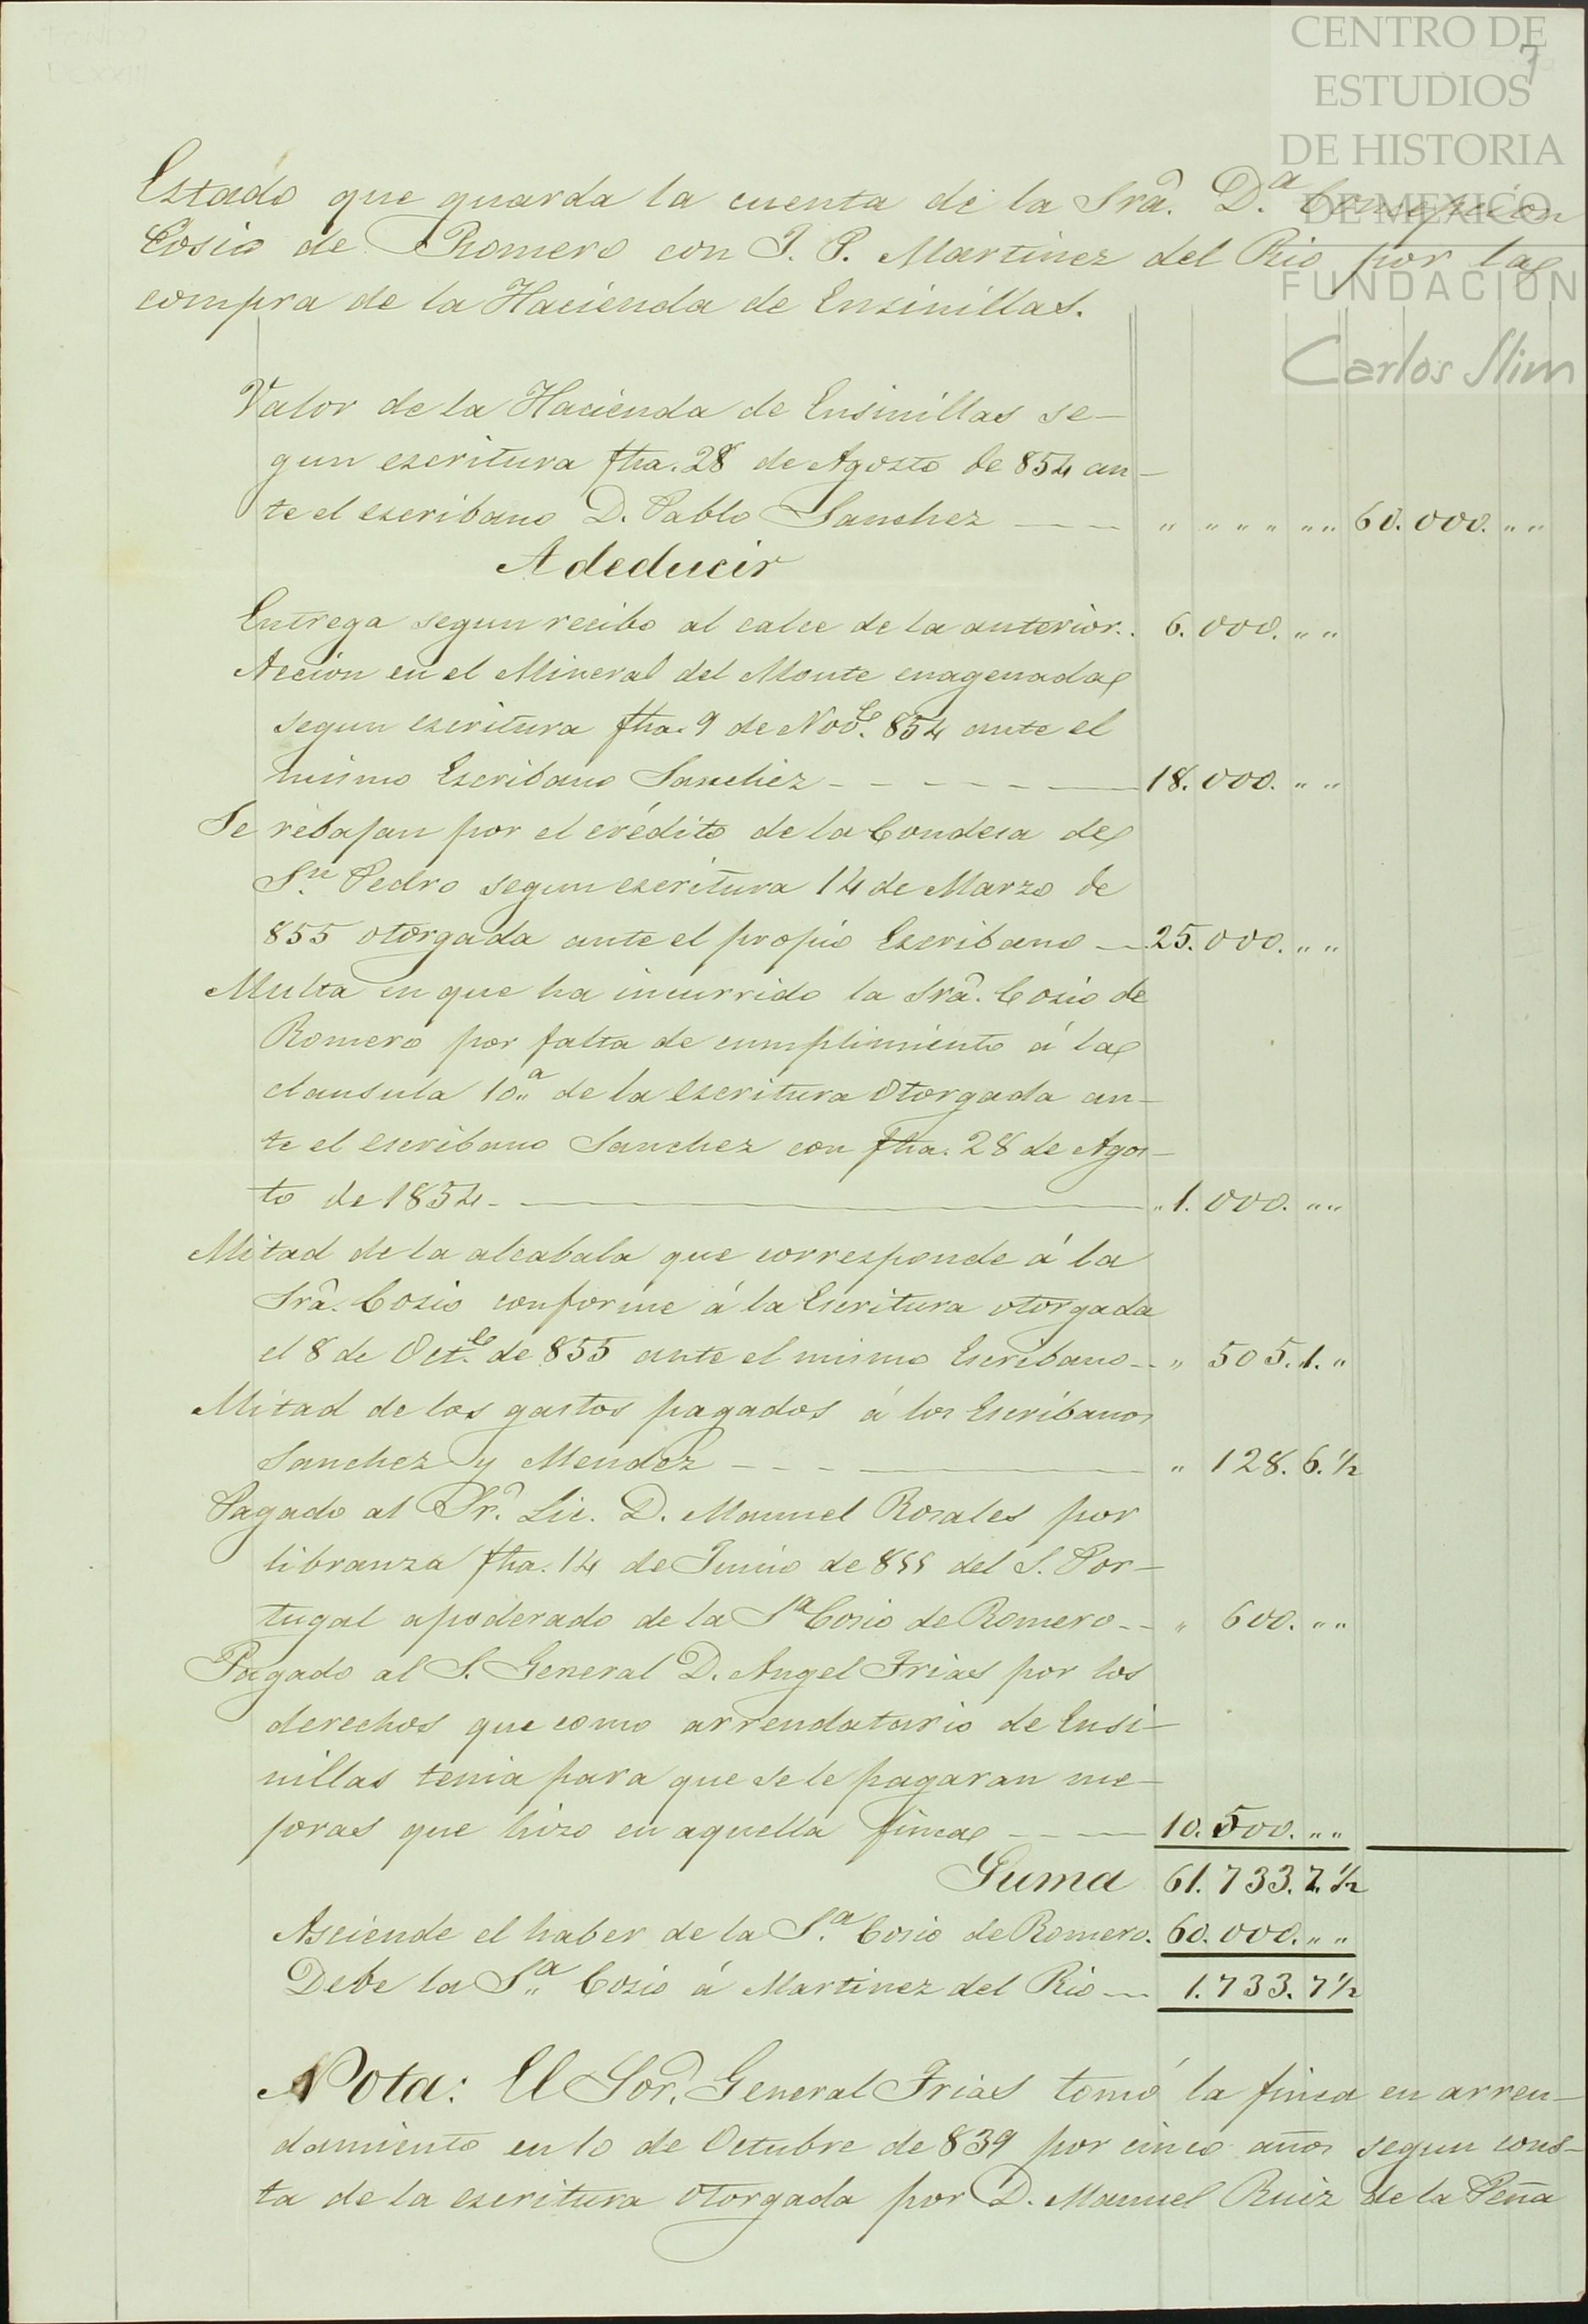 CENTRO DE
ESTUDIOS
DE HISTORIA
DE MEXICO
FUNDACIÓN
Carlos Slim
7
Estado que guarda la cuenta de la Srã. D.ª Concepcion
Cosio de Romero con J. P. Martinez del Rio por la
compra de la Hacienda de Ensinillas.
Valor de la Hacienda de Ensinillas se-
gun escritura fha. 28 de Agosto de 854 an-
te el escribano D. Pablo Sanchez — — " " " " " " 60.000. " "
A deducir
Entrega segun recibo al calce de la anterior. . 6.000. " "
Accion en el Mineral del Monte enagenada
segun escritura fha. 9 de Nov.e 854 ante el
mismo Escribano Sanchez - - - - - — 18.000. " "
Se rebajan por el crédito de la Condesa de
S.n Pedro segun escritura 14 de Marzo de
855 otorgada ante el propio Escribano — 25.000. " "
Multa en que ha incurrido la Srã. Cosio de
Romero por falta de cumplimiento á la
clausula 10.ª de la escritura otorgada an-
te el escribano Sanchez con fha. 28 de Agos-
to de 1854 - — " 1.000. " "
Mitad de la alcabala que corresponde á la
Srã. Cosio conforme á la Escritura otorgada
el 8 de Oct.e de 855 ante el mismo Escribano - - " 505. 1. "
Mitad de los gastos pagados á los Escribanos
Sanchez y Mendez - - - — " 128. 6. ½
Pagado al Sr. Lic. D. Manuel Rosales por
libranza fha. 14 de Junio de 855 del S. Por-
tugal apoderado de la S.ª Cosio de Romero - - " 600. " "
Pagado al S. General D. Angel Frias por los
derechos que como arrendatario de Ensi-
nillas tenia para que se le pagaran me-
joras que hizo en aquella finca - - — 10.500. " "
Suma 61.733. 7. ½
Asciende el haber de la S.ª Cosio de Romero. 60.000. " "
Debe la S.ª Cosio á Martinez del Rio — 1.733. 7 ½
Nota: El Sor. General Frias tomó la finca en arren-
damiento en 10 de Octubre de 839 por cinco años segun cons-
ta de la escritura otorgada por D. Manuel Ruiz de la Peña